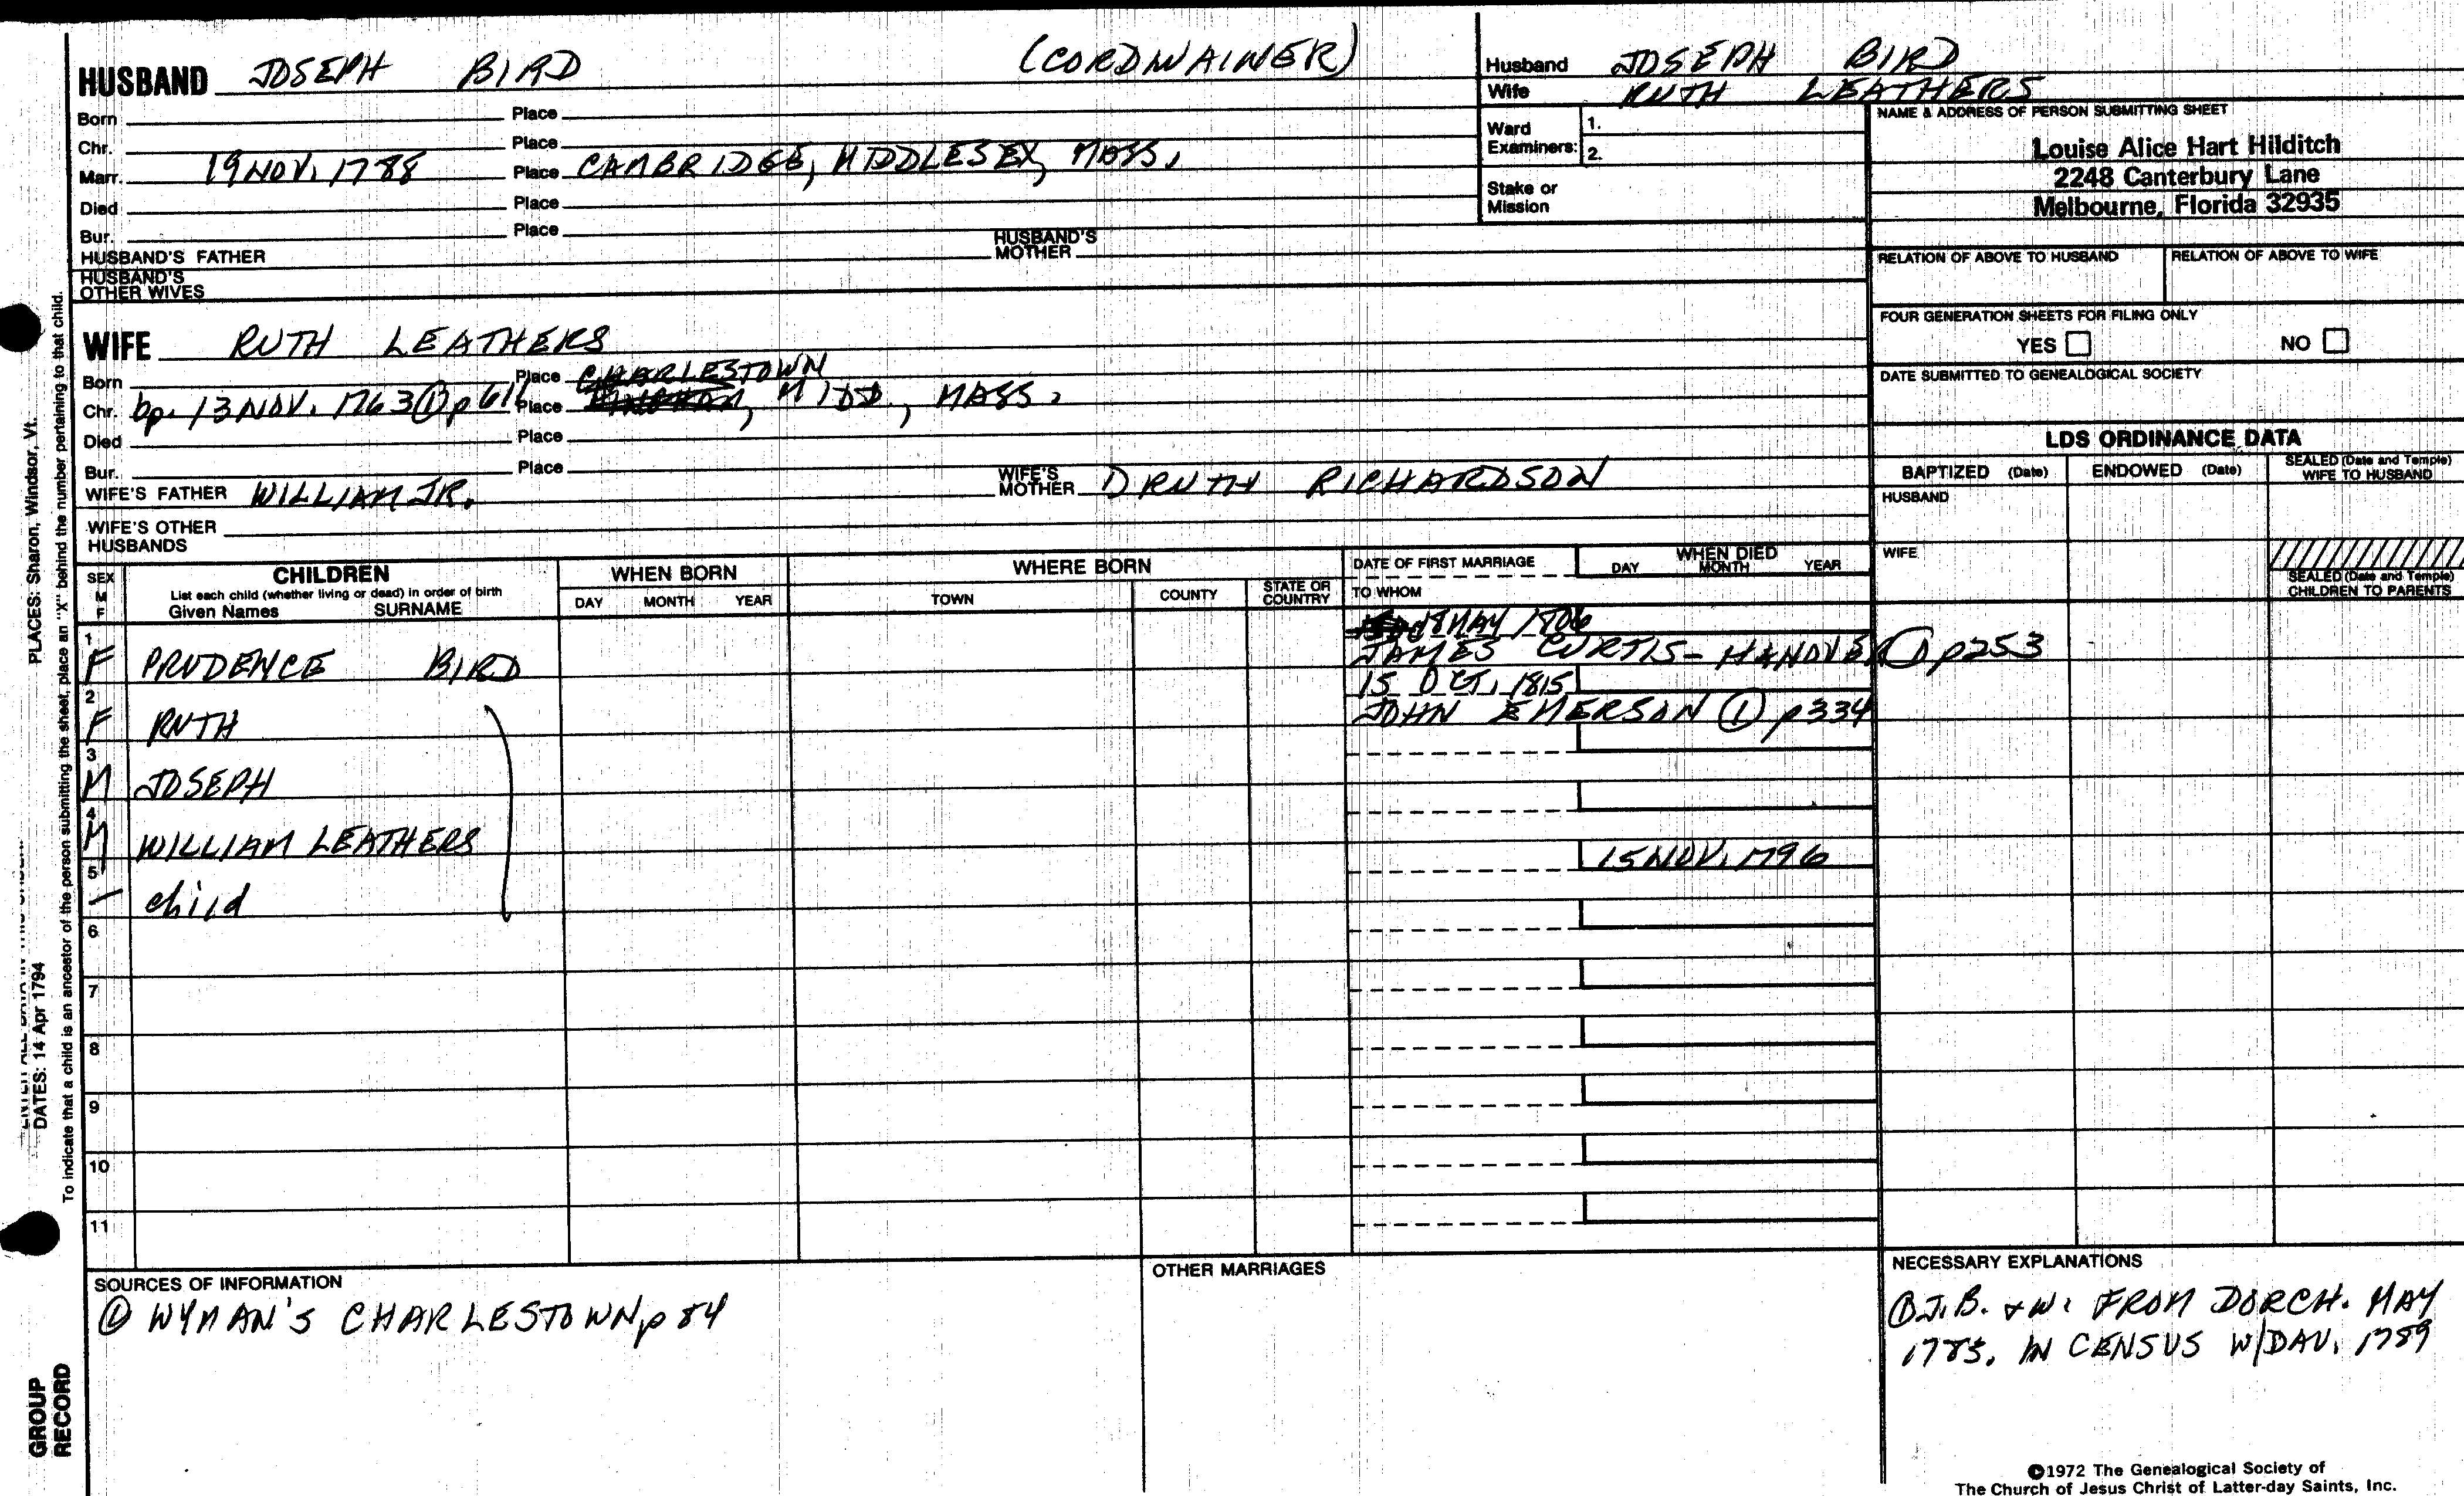 HUSBAND JOSEPH BIRD (CORDWAINER)
Born Place
Chr. Place
Marr. 19 NOV. 1788 Place CAMBRIDGE, MIDDLESEX, MASS.
Died Place
Bur. Place
HUSBAND'S FATHER HUSBAND'S MOTHER
HUSBAND'S OTHER WIVES
Husband JOSEPH BIRD
Wife RUTH LEATHERS
Ward Examiners: 1.
2.
Stake or Mission
NAME & ADDRESS OF PERSON SUBMITTING SHEET
Louise Alice Hart Hilditch
2248 Canterbury Lane
Melbourne, Florida 32935
RELATION OF ABOVE TO HUSBAND RELATION OF ABOVE TO WIFE
FOUR GENERATION SHEETS FOR FILING ONLY
YES NO
DATE SUBMITTED TO GENEALOGICAL SOCIETY
WIFE RUTH LEATHERS
Born Place CHARLESTOWN
Chr. bp. 13 NOV. 1763 ① p 616 Place , MIDD., MASS.
Died Place
Bur. Place
WIFE'S FATHER WILLIAM JR. WIFE'S MOTHER DRUTH RICHARDSON
WIFE'S OTHER HUSBANDS
LDS ORDINANCE DATA
BAPTIZED (Date) ENDOWED (Date) SEALED (Date and Temple) WIFE TO HUSBAND
HUSBAND
WIFE
SEALED (Date and Temple) CHILDREN TO PARENTS
SEX M F
CHILDREN
List each child (whether living or dead) in order of birth
Given Names SURNAME
WHEN BORN
DAY MONTH YEAR
WHERE BORN
TOWN COUNTY STATE OR COUNTRY
DATE OF FIRST MARRIAGE
TO WHOM
WHEN DIED
DAY MONTH YEAR
1 18 MAY 1806
F PRUDENCE BIRD JAMES CURTIS - HANOVER ① p253
2 15 OCT. 1815
F RUTH JOHN EMERSON ① p334
3
M JOSEPH
4
M WILLIAM LEATHERS 15 NOV. 1796
5
- child
6
7
8
9
10
11
SOURCES OF INFORMATION
① WYMAN'S CHARLESTOWN p 84
OTHER MARRIAGES
NECESSARY EXPLANATIONS
① J.B. & W. FROM DORCH. MAY
1785. IN CENSUS W/DAU. 1789
©1972 The Genealogical Society of
The Church of Jesus Christ of Latter-day Saints, Inc.
PLACES: Sharon, Windsor, Vt.
DATES: 14 Apr 1794
To indicate that a child is an ancestor of the person submitting the sheet, place an "X" behind the number pertaining to that child.
GROUP RECORD